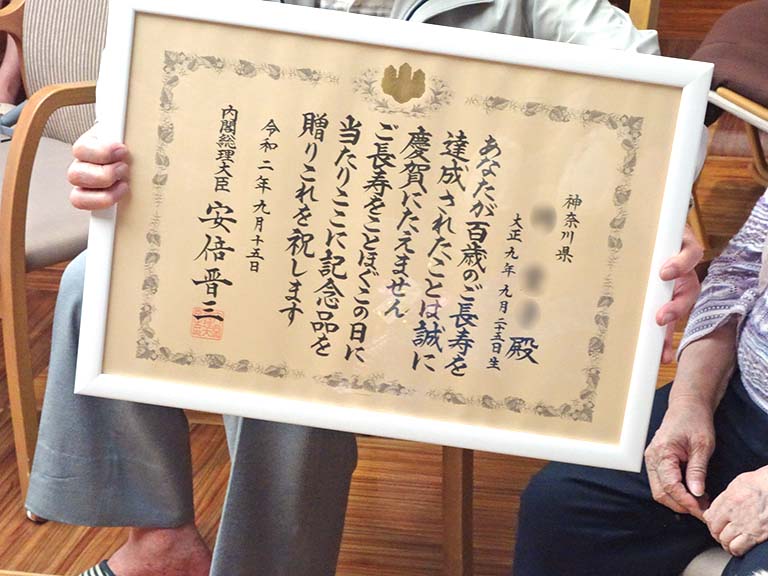 神奈川県
殿
大正九年九月二十五日生
あなたが百歳のご長寿を
達成されたことは誠に
慶賀にたえません
ご長寿をことほぐこの日に
当たりここに記念品を
贈りこれを祝します
令和二年九月十五日
内閣総理大臣 安倍晋三